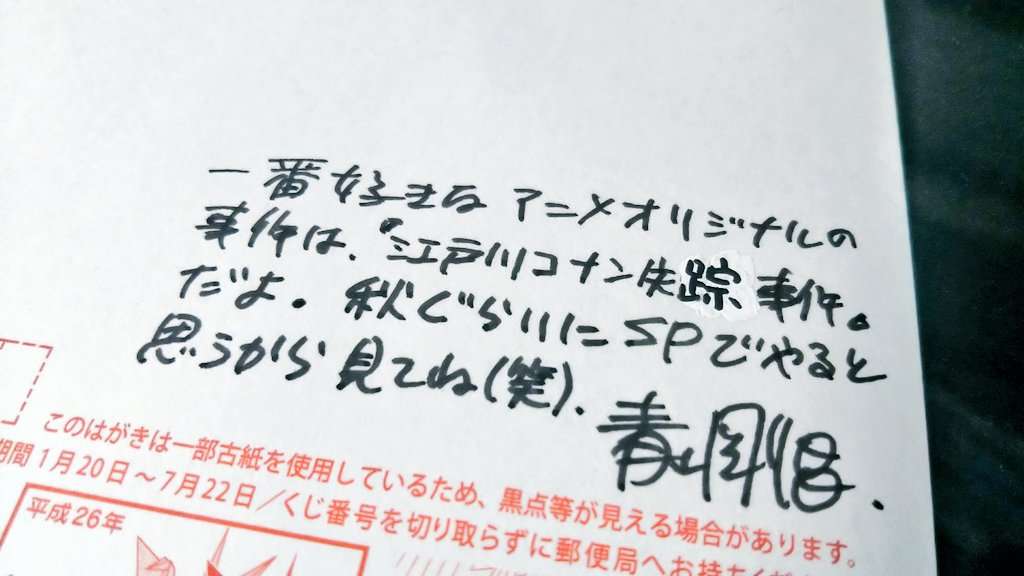 一番好きなアニメオリジナルの
事件は、“江戸川コナン失踪事件〟
だよ。秋ぐらいにSPでやると
思うから見てね(笑).
青山剛昌.
このはがきは一部古紙を使用しているため、黒点等が見える場合があります。
期間1月20日〜7月22日/くじ番号を切り取らずに郵便局へお持ちくだ
平成26年